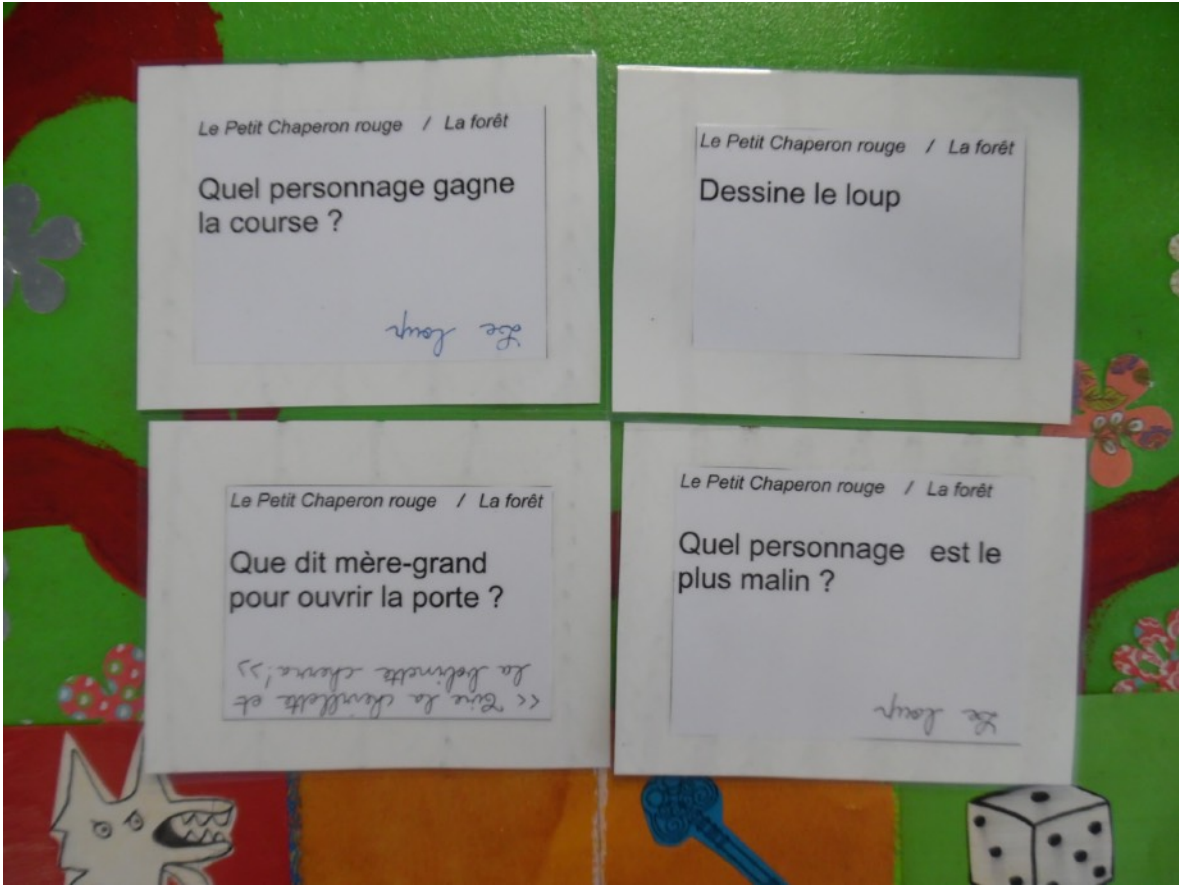 Le Petit Chaperon rouge / La forêt
Quel personnage gagne
la course ?
Le loup
Le Petit Chaperon rouge / La forêt
Dessine le loup
Le Petit Chaperon rouge / La forêt
Que dit mère-grand
pour ouvrir la porte ?
<< Tire la chevillette et
la bobinette cherra! >>
Le Petit Chaperon rouge / La forêt
Quel personnage est le
plus malin ?
Le loup